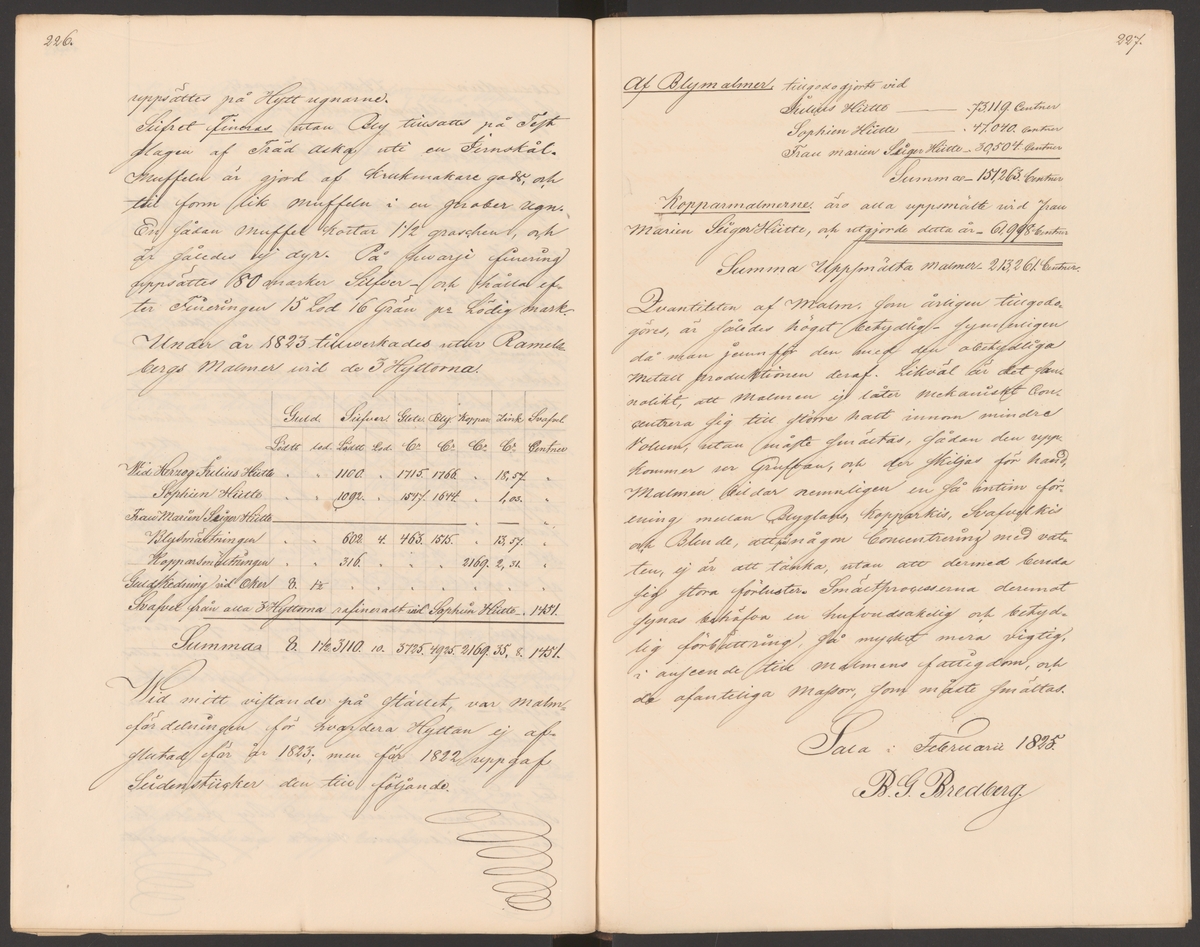 226.
uppsättes på Hytt ugnarne.
Silfret fineras utan Bly tillsatts på Test
slagen af Träd aska uti en Jernskål.
Muffeln är gjord af krukmakare gods, och
till form lik muffeln i en prober ugn.
En sådan muffel kostar 1 1/2 groschen, och
är således ej dyr. På hvarje finering
uppsättes 80 marker Silfver och hålla ef-
ter Fineringen 15 Lod 16 Grän pr Lödig mark.
Under år 1823 tillverkades utur Ramels-
bergs Malmer vid de 3 Hyttorna.
Guld Silfver Glete Bly Koppar Zink Svafvel
Lödt lod. Lödt Lod. Cr. Cr. Cr. Cr. Centner
Wid Herzog Julius Hütte . . 1100. . 1715. 1766 . 18,57. .
Sophien Hütte . . 1092. . 1547. 1644. . 1,03. .
Frau Marien Seiger Hütte
Blysmältningen . . 602. 4. 463. 1515. . 13,57. .
Kopparsmältningen . . 316. . . . 2169. 2,31. .
Guldskedning vid Oker 8. 1 1/2 . . . . . . .
Svafvel från alla 3 Hyttorna rafineradt vid Sophien Hütte . 1451.
Summa 8. 1 1/2 3110. 10. 3725. 4925. 2169. 35, 8. 1451.
Wid mitt vistande på stället, var malm-
fördelningen för hvardera Hyttan ej af-
slutad för år 1823; men för 1822 uppgaf
Südenstücker den till följande.
227.
Af Blymalmer, tillgodogjorts vid
Julius Hütte — 73119 Centner
Sophien Hütte — 47.040. Centner
Frau Marien Seiger Hütte — 30,504. Centner
Summa — 151,263. Centner
Kopparmalmerne, äro alla uppsmälte vid Frau
Marien Seiger Hütte, och utgjorde detta år — 61,998 Centner
Summa Uppsmälta malmer 213,261. Centner.
Qvantiteten af Malm, som årligen tillgodo-
göres, är således högst betydlig — synnerligen
då man jemnför den med den obetydliga
Metall produktionen deraf. Likväl är det san-
nolikt, att Malmen ej låter mekaniskt Con-
centrera sig till större halt innom mindre
Volum, utan måste smältas, sådan den upp-
kommer ur Grufvan, och der skiljas för hand,
Malmen bildar nemnligen en så intim för-
ening mellan Blyglans, Kopparkis, Svafvelkis
och Blende, att någon Concentrering med vat-
ten, ej är att tänka, utan att dermed bereda
sig stora förluster. Smältprocesserna deremot
synas behöfva en hufvudsakelig och betyd-
lig förbättring, så mycket mera vigtig,
i anseende till malmens fattigdom, och
de ofanteliga massor, som måste smältas.
Sala i Februarii 1825.
B. G. Bredberg.